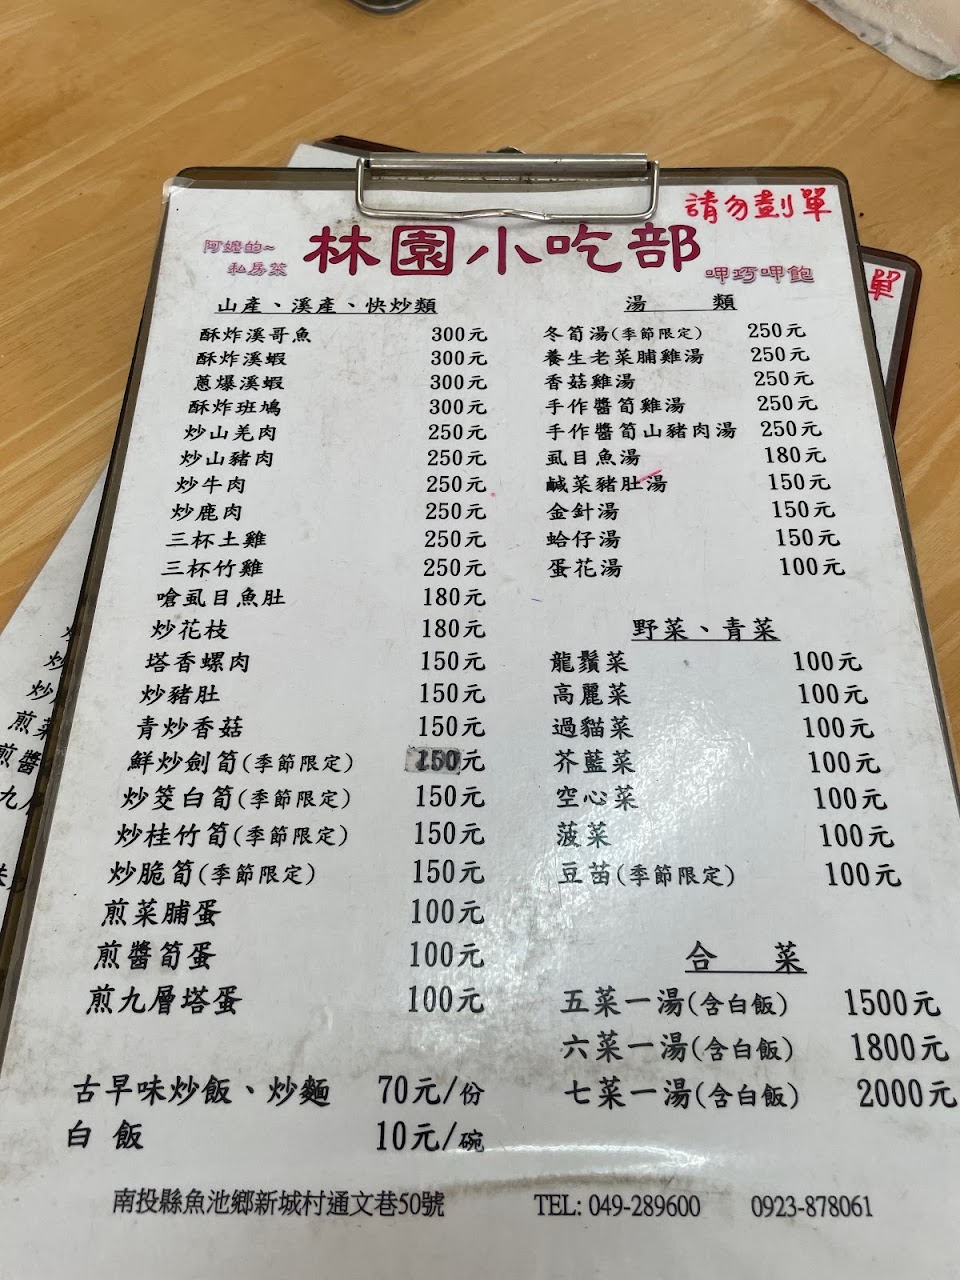 請勿劃單
阿嬤的~
私房菜
林園小吃部
呷巧呷飽
單
山產、溪產、快炒類
酥炸溪哥魚 300元
酥炸溪蝦 300元
蔥爆溪蝦 300元
酥炸班鳩 300元
炒山羌肉 250元
炒山豬肉 250元
炒牛肉 250元
炒鹿肉 250元
三杯土雞 250元
三杯竹雞 250元
嗆虱目魚肚 180元
炒花枝 180元
塔香螺肉 150元
炒豬肚 150元
青炒香菇 150元
鮮炒劍筍(季節限定) 150元
炒筊白筍(季節限定) 150元
炒桂竹筍(季節限定) 150元
炒脆筍(季節限定) 150元
煎菜脯蛋 100元
煎醬筍蛋 100元
煎九層塔蛋 100元
古早味炒飯、炒麵 70元/份
白飯 10元/碗
湯 類
冬筍湯(季節限定) 250元
養生老菜脯雞湯 250元
香菇雞湯 250元
手作醬筍雞湯 250元
手作醬筍山豬肉湯 250元
虱目魚湯 180元
鹹菜豬肚湯 150元
金針湯 150元
蛤仔湯 150元
蛋花湯 100元
野菜、青菜
龍鬚菜 100元
高麗菜 100元
過貓菜 100元
芥藍菜 100元
空心菜 100元
菠菜 100元
豆苗(季節限定) 100元
合 菜
五菜一湯(含白飯) 1500元
六菜一湯(含白飯) 1800元
七菜一湯(含白飯) 2000元
南投縣魚池鄉新城村通文巷50號 TEL: 049-289600 0923-878061
炒
炒
煎菜
煎醬
九